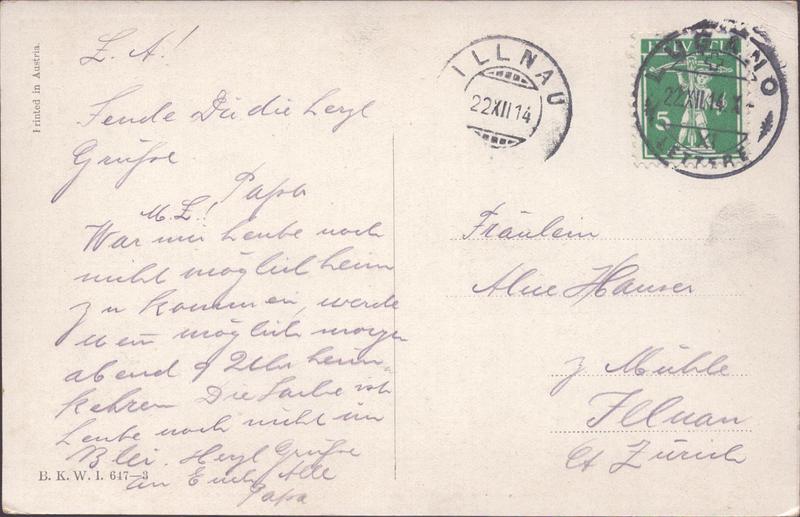 L. A.!
Sende Dir die herzl
Grüsse
Papa
M. L.!
War mir heute noch
nicht möglich heim
zu kommen, werde
wenn möglich morgen
abend 9 Uhr heim
kehren Die Sache ist
heute noch nicht im
Blei. Herzl Grüsse
an Euch Alle
Papa
Printed in Austria.
B. K. W. I. 647-3
ILLNAU
22 XII 14
HELVETIA
5
LUGANO
22 XII 14
XI
LETTERE
Fräulein
Alice Hauser
z Mühle
Illnau
Ct Zürich